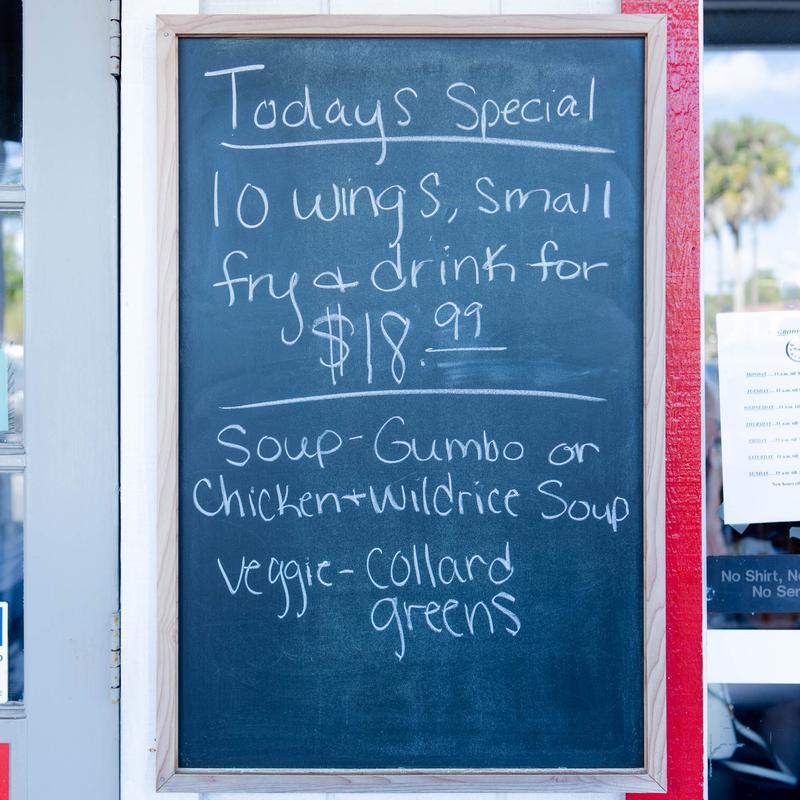 Todays Special
10 wings, small
fry & drink for
$18.99
Soup - Gumbo or
Chicken + Wildrice Soup
veggie - Collard
greens
MONDAY
TUESDAY
WEDNESDAY
THURSDAY
FRIDAY
SATURDAY
SUNDAY
New hours
No Shirt, 
No